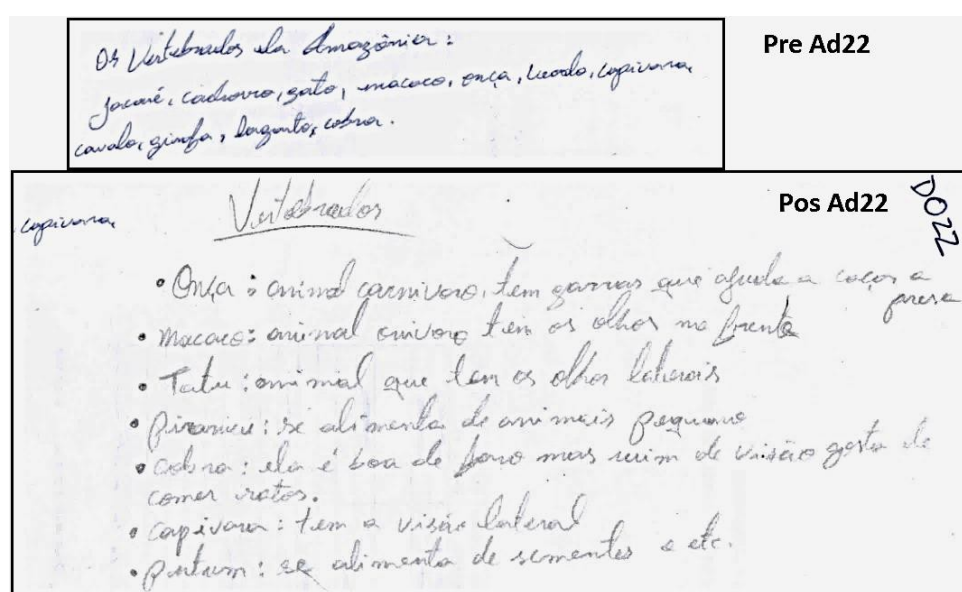 Pre Ad22
Os Vertebrados da Amazônia:
Jacaré, cachorro, gato, macaco, onça, capivara,
cavalo, girafa, lagarto, cobra.
Pos Ad22
DO22
capivara,
Vertebrados
• Onça: animal carnivoro, tem garras que ajuda a caçar a
presa
• Macaco: animal onivoro tem os olhos na frente
• Tatu: animal que tem os olhos laterais
• se alimenta de animais pequeno
• Cobra: ela é boa de faro mas ruim de visão gosta de
comer ratos.
• capivara: tem a visão lateral
• se alimenta de sementes e etc.